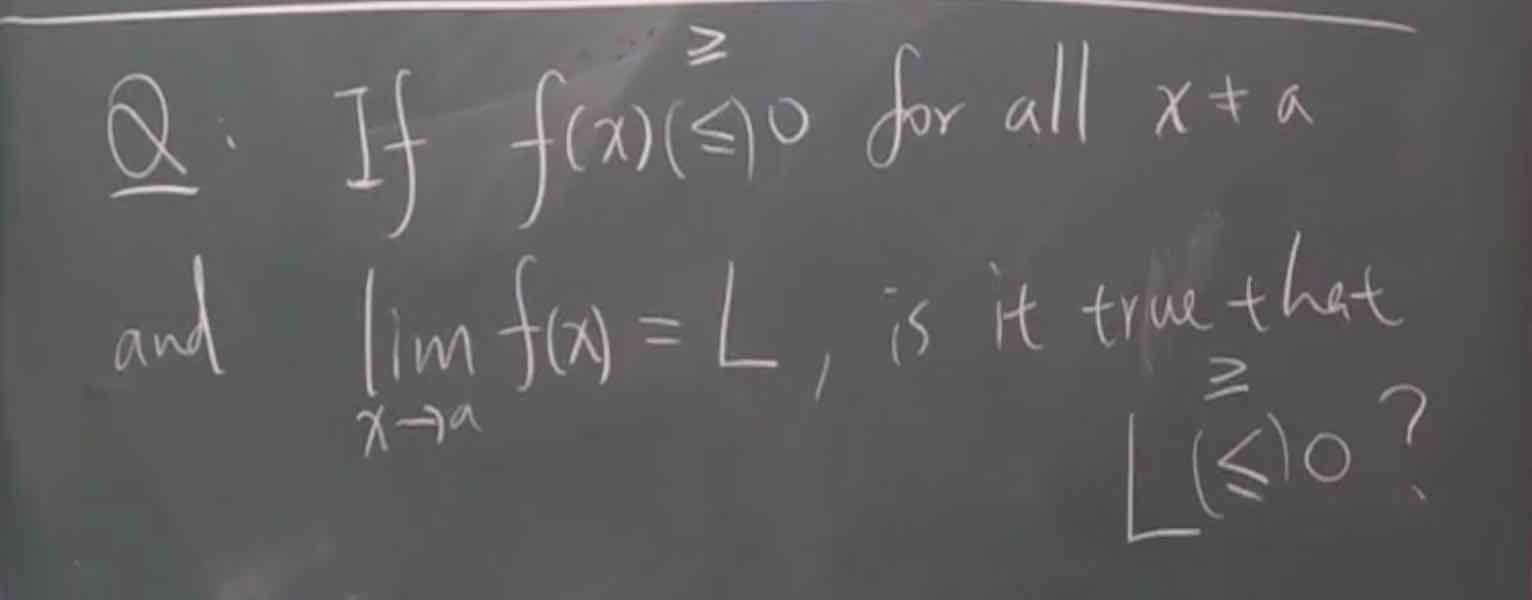 ≥
Q: If f(x)(≤)0 for all x ≠ a
and lim f(x) = L, is it true that
x→a
≥
L(≤)0?